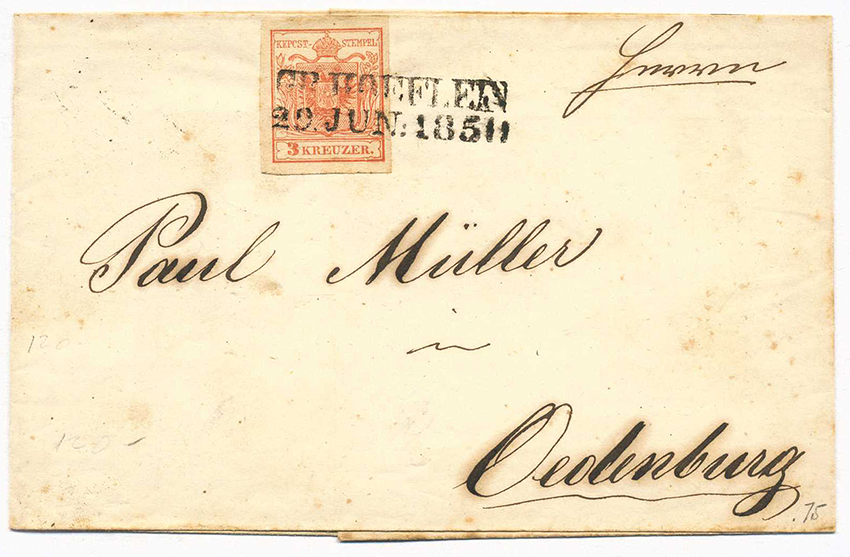 KKPOST-STEMPEL
GR. HOEFLEIN
20. JUN: 1850
3 KREUZER.
Herrn
Paul Müller
in
Oedenburg
120
120-
.75